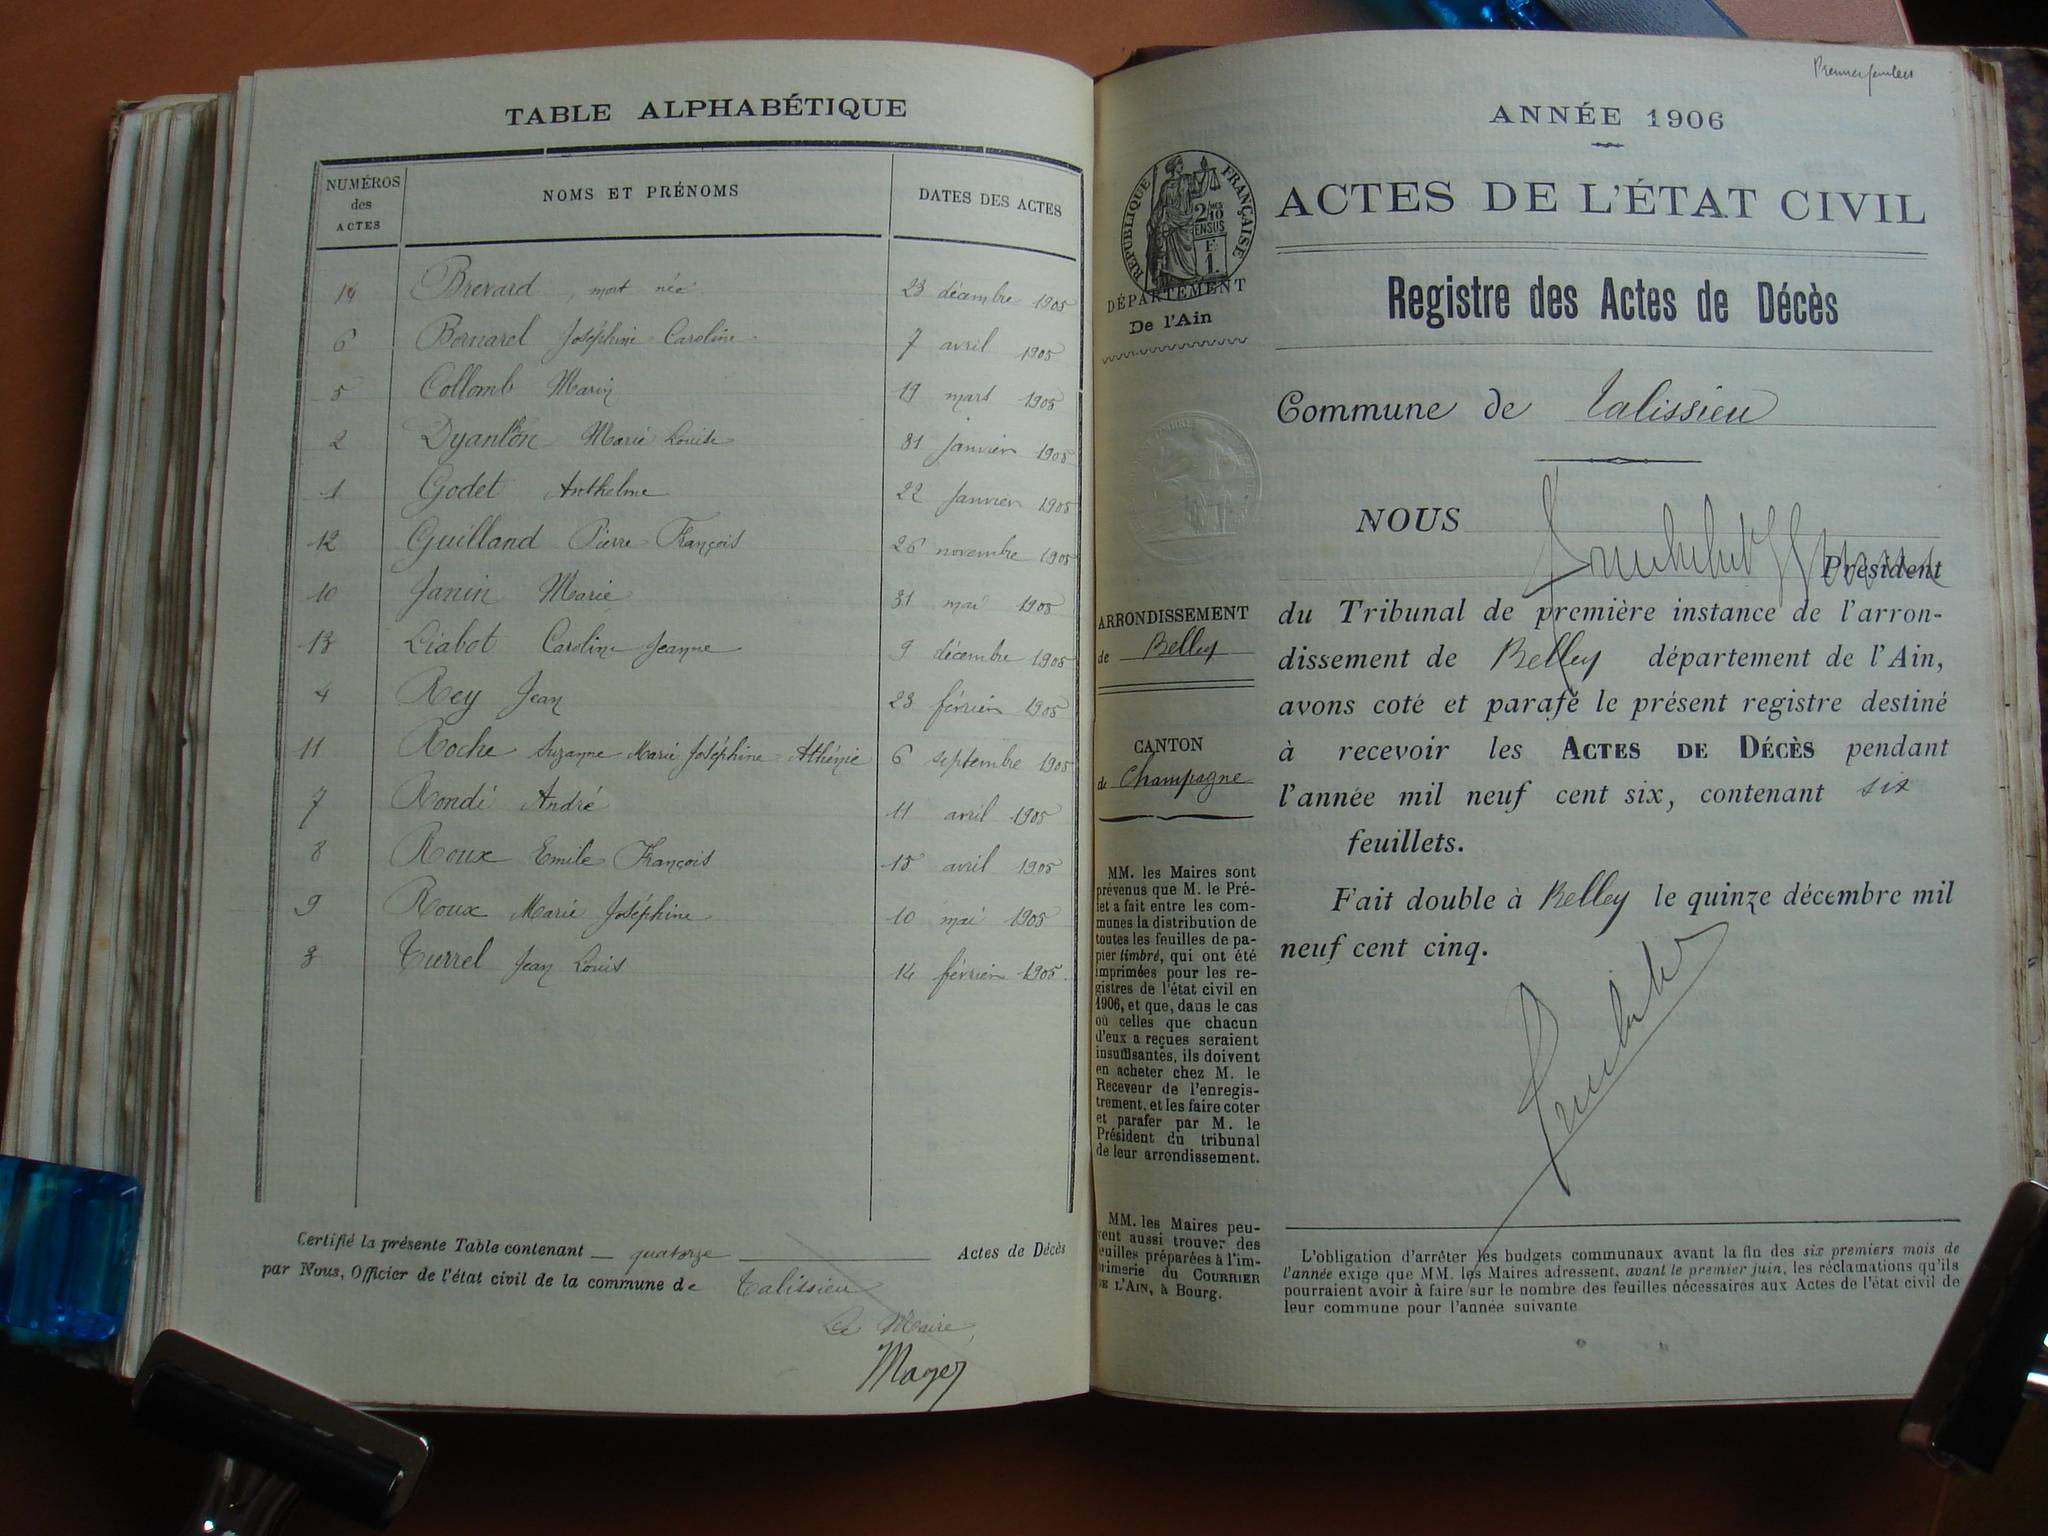 TABLE ALPHABÉTIQUE
NUMÉROS des ACTES NOMS ET PRÉNOMS DATES DES ACTES
14 Brevard, mort née 23 décembre 1905
6 Bornarel Joséphine Caroline 7 avril 1905
5 Collomb Marin 19 mars 1905
2 Dyanlon Marie Louise 31 janvier 1905
1 Godet Anthelme 22 janvier 1905
12 Guilland Pierre François 26 novembre 1905
10 Janin Marie 31 mai 1905
13 Liabot Caroline Jeanne 9 décembre 1905
4 Rey Jean 23 février 1905
11 Roche Suzanne Marie Joséphine Athénie 6 septembre 1905
7 Rondi André 11 avril 1905
8 Roux Emile François 15 avril 1905
9 Roux Marie Joséphine 10 mai 1905
3 Turrel Jean Louis 14 février 1905.
Certifié la présente Table contenant quatorze Actes de Décès
par Nous, Officier de l'état civil de la commune de Talissieu
Le Maire,
Premier feuillet
ANNÉE 1906
ACTES DE L'ÉTAT CIVIL
RÉPUBLIQUE FRANÇAISE
2/10 EN SUS
F.
1.
DÉPARTEMENT
De l'Ain
Registre des Actes de Décès
Commune de Talissieu
NOUS
Président
du Tribunal de première instance de l'arron-
dissement de Belley département de l'Ain,
avons coté et parafé le présent registre destiné
à recevoir les ACTES DE DÉCÈS pendant
l'année mil neuf cent six, contenant six
feuillets.
Fait double à Belley le quinze décembre mil
neuf cent cinq.
ARRONDISSEMENT
de Belley
CANTON
de Champagne
MM. les Maires sont
prévenus que M. le Pré-
fet a fait entre les com-
munes la distribution de
toutes les feuilles de pa-
pier timbré, qui ont été
imprimées pour les re-
gistres de l'état civil en
1906, et que, dans le cas
où celles que chacun
d'eux a reçues seraient
insuffisantes, ils doivent
en acheter chez M. le
Receveur de l'enregis-
trement, et les faire coter
et parafer par M. le
Président du tribunal
de leur arrondissement.
MM. les Maires peu-
vent aussi trouver des
feuilles préparées à l'im-
primerie du COURRIER
DE L'AIN, à Bourg.
L'obligation d'arrêter les budgets communaux avant la fin des six premiers mois de
l'année exige que MM. les Maires adressent, avant le premier juin, les réclamations qu'ils
pourraient avoir à faire sur le nombre des feuilles nécessaires aux Actes de l'état civil de
leur commune pour l'année suivante